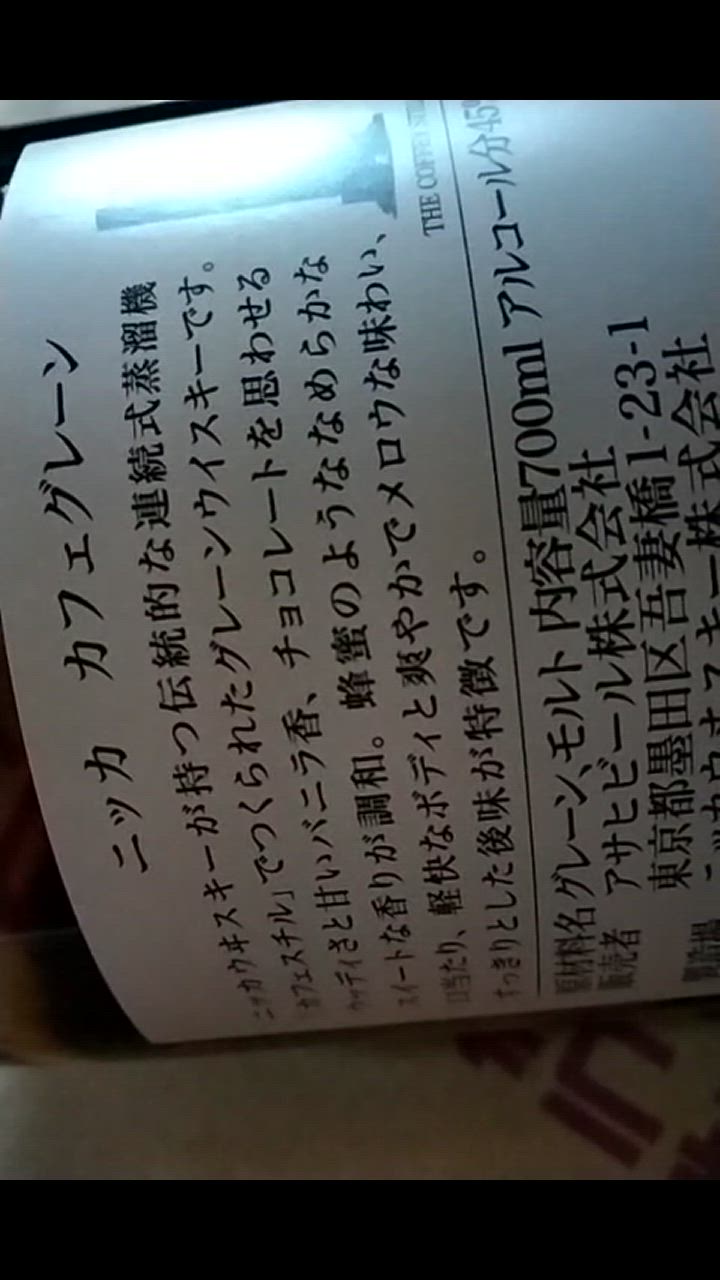 ニッカ カフェグレーン
ニッカウヰスキーが持つ伝統的な連続式蒸溜機
「カフェスチル」でつくられたグレーンウイスキーです。
ウッディさと甘いバニラ香、チョコレートを思わせる
スイートな香りが調和。蜂蜜のようななめらかな
口当たり、軽快なボディと爽やかでメロウな味わい、
すっきりとした後味が特徴です。
THE COFFEY
原材料名 グレーン、モルト 内容量700ml アルコール分45%
販売者 アサヒビール株式会社
東京都墨田区吾妻橋1-23-1
株式会社